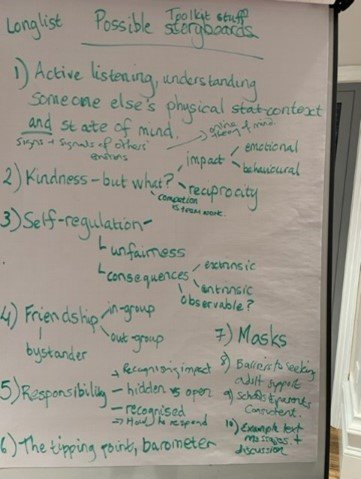 Longlist Possible Toolkit stuff
storyboards
1) Active listening, understanding
someone else's physical stat-context
and state of mind,
theory of mind.
Signs + signals of others'
emotions
impact - emotional
behavioural
2) Kindness - but what? reciprocity
3) Self-regulation -
unfairness
consequences - extrinsic
intrinsic
observable?
4) Friendship - in-group
out-group
bystander
7) Masks
8) Barriers to seeking
adult support
9) schools + parents
consistent.
10) Example text
messages +
discussion
5) Responsibility - Recognising impact
- hidden vs open
- recognised
→ How to respond
6) The tipping point, barometer